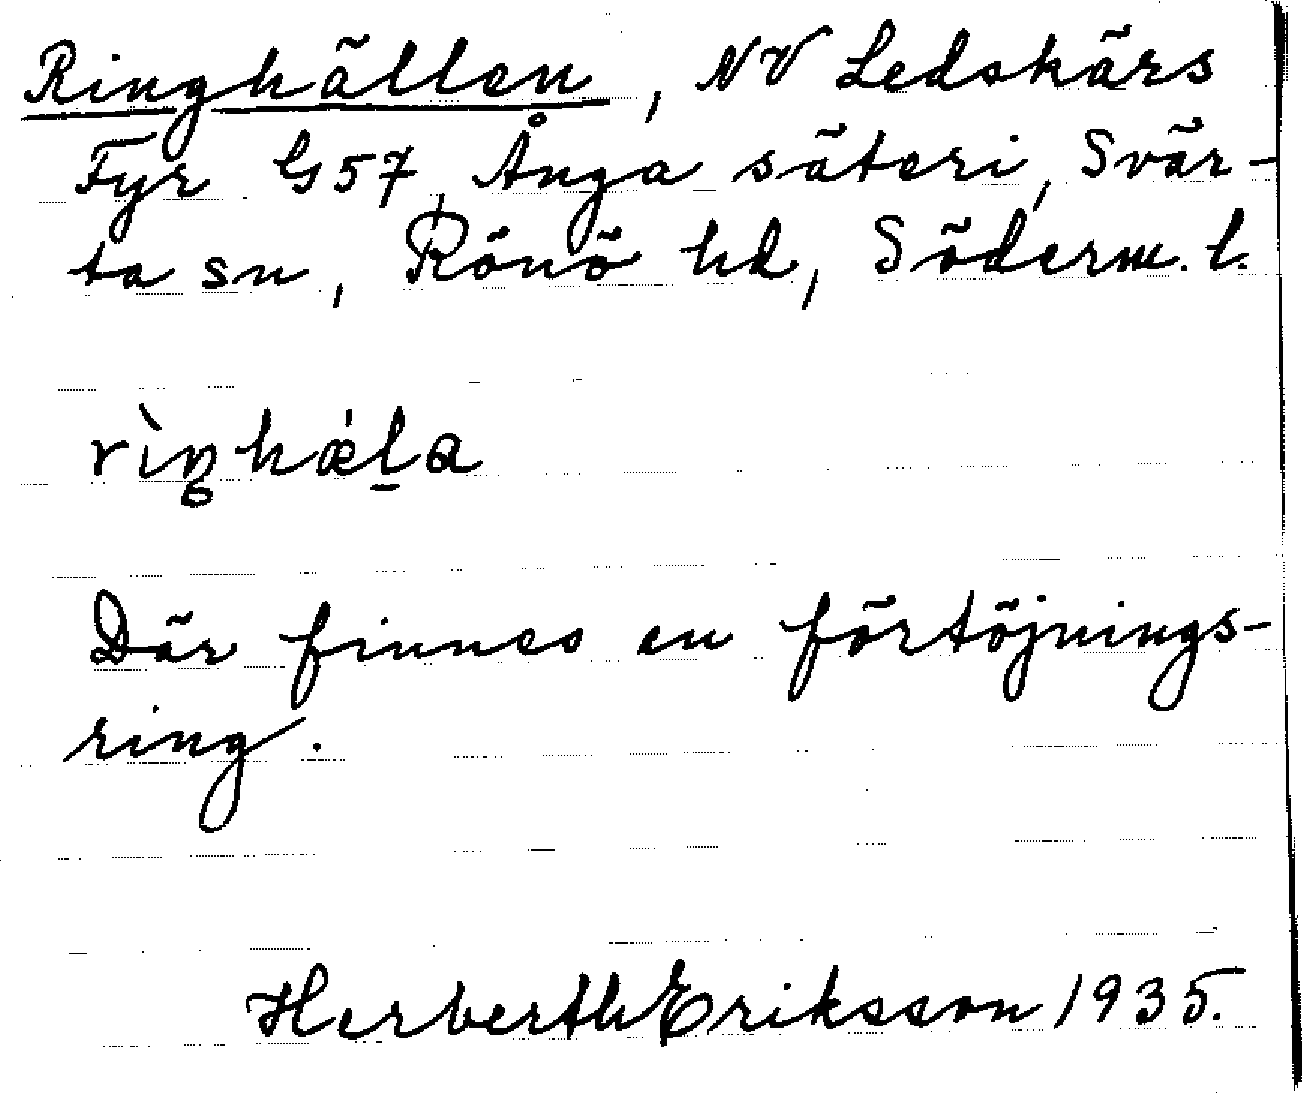 Ringhällen, NV Ledskärs
Fyr G57, Ånga säteri, Svär-
ta sn, Rönö hd, Söderm. l.
rìŋhǽl̠a
Där finnes en förtöjnings-
ring.
Herberth Eriksson 1935.